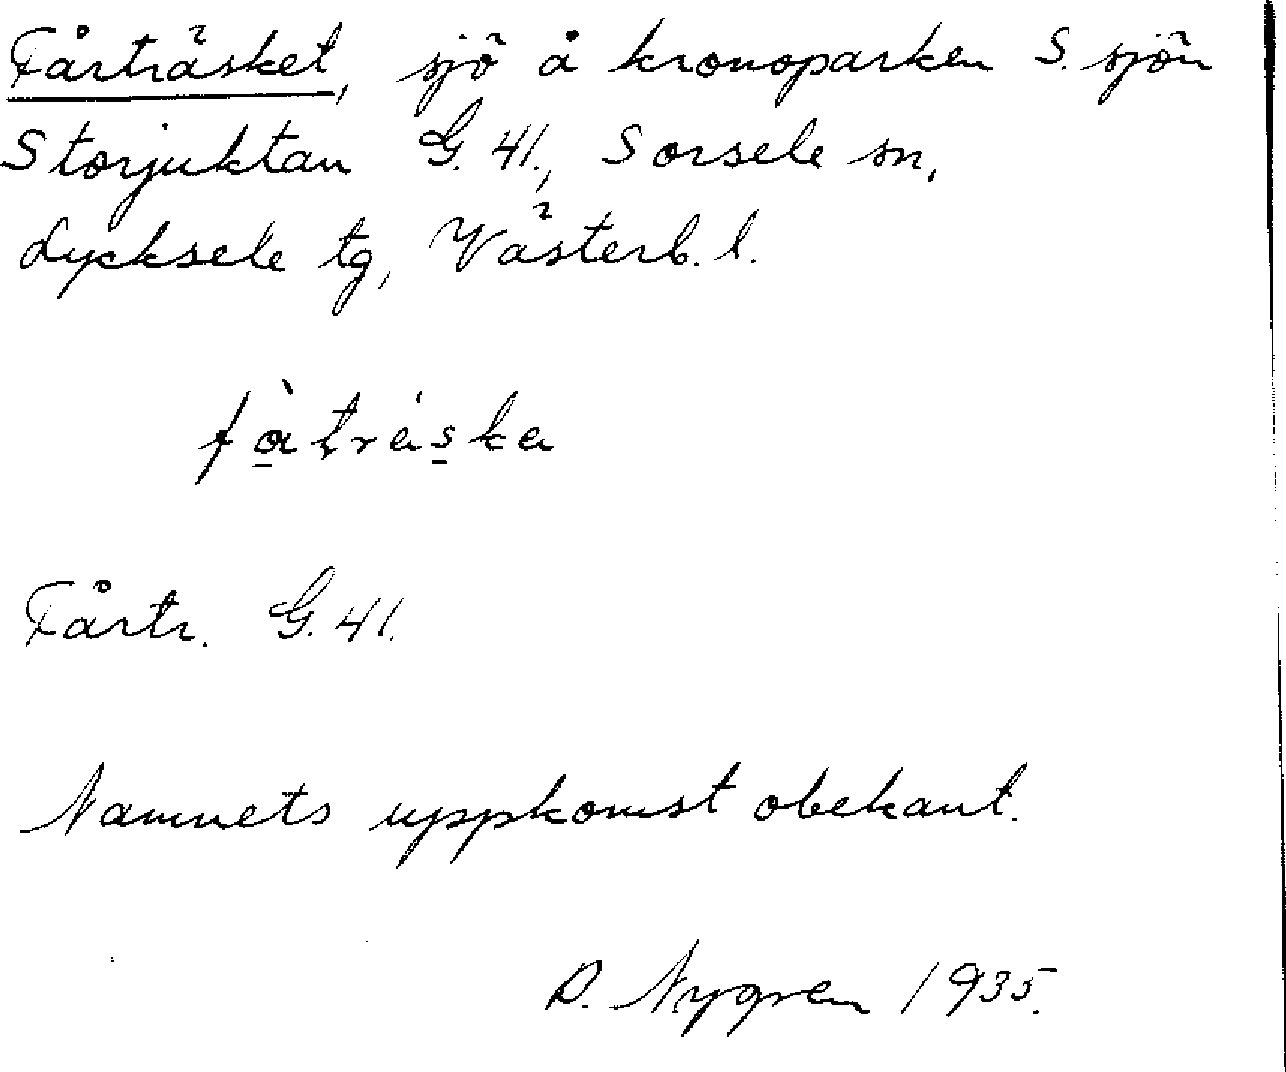 Fårträsket, sjö å kronoparken S. sjön
Storjuktan G. 41., Sorsele sn,
Lycksele tg, Västerb. l.
fàtráska
Fårtr. G. 41.
Namnets uppkomst obekant.
D. Nygren 1935.